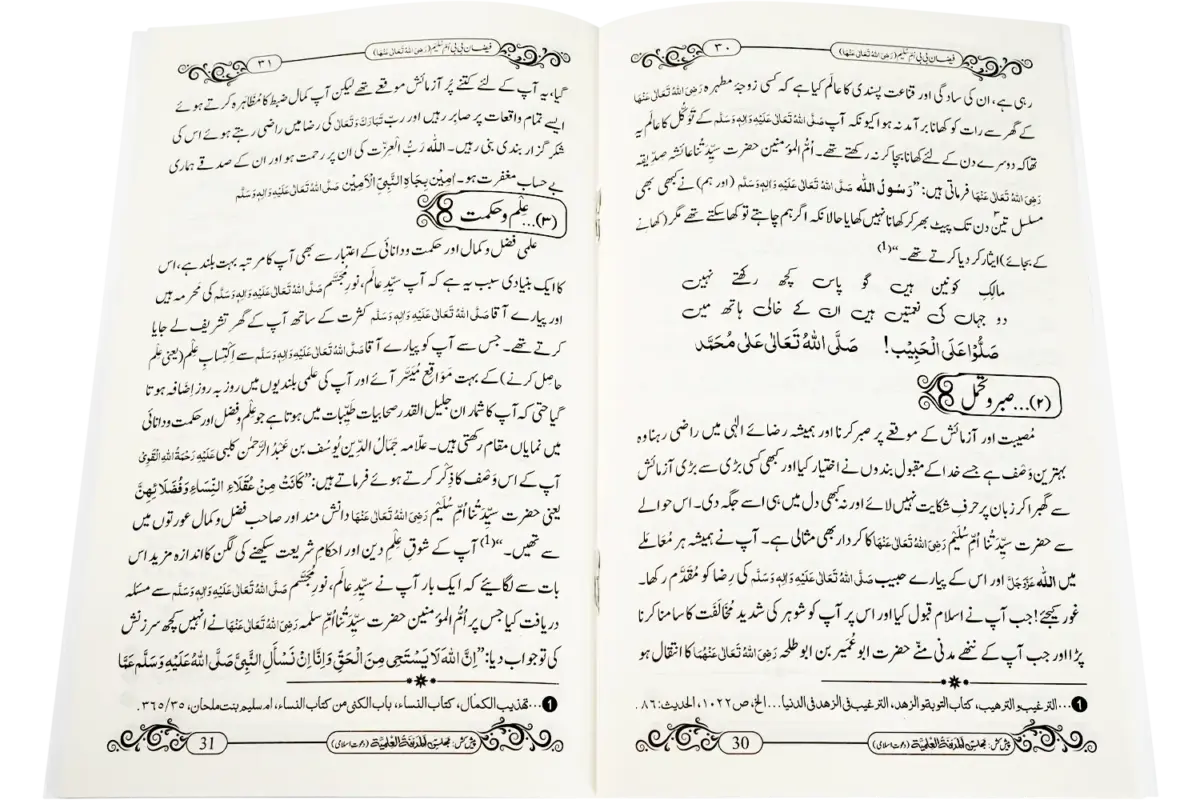 ۳۰ فیضانِ بی بی اُمِّ سُلَیم (رَضِیَ اللہُ تَعَالٰی عَنْہَا)
رہی ہے، ان کی سادگی اور قناعت پسندی کا عالَم کیا ہے کہ کسی زوجۂ مطہرہ رَضِیَ اللہُ تَعَالٰی عَنْہَا
کے گھر سے رات کو کھانا برآمد نہ ہوا کیونکہ آپ صَلَّی اللہُ تَعَالٰی عَلَیْہِ وَاٰلِہٖ وَسَلَّم کے تَوَکُّل کا عالَم یہ
تھا کہ دوسرے دن کے لئے کھانا بچا کر نہ رکھتے تھے۔ اُمُّ المؤمنین حضرت سَیِّدَتُنا عائشہ صِدِّیقہ
رَضِیَ اللہُ تَعَالٰی عَنْہَا فرماتی ہیں: ”رَسُولُ اللہ صَلَّی اللہُ تَعَالٰی عَلَیْہِ وَاٰلِہٖ وَسَلَّم (اور ہم) نے کبھی بھی
مسلسل تین دن تک پیٹ بھر کر کھانا نہیں کھایا حالانکہ اگر ہم چاہتے تو کھا سکتے تھے مگر (کھانے
کے بجائے) ایثار کر دیا کرتے تھے۔“(1)
مالِکِ کونین ہیں گو پاس کچھ رکھتے نہیں
دو جہاں کی نعمتیں ہیں ان کے خالی ہاتھ میں
صَلُّوْا عَلَی الْحَبِیْب! صَلَّی اللہُ تَعَالٰی عَلٰی مُحَمَّد
(۲)...صبر و تحمل
مُصیبت اور آزمائش کے موقعے پر صبر کرنا اور ہمیشہ رضائے الٰہی میں راضی رہنا وہ
بہترین وَصْف ہے جسے خدا کے مقبول بندوں نے اختیار کیا اور کبھی کسی بڑی سے بڑی آزمائش
سے گھبرا کر زبان پر حرفِ شکایت نہیں لائے اور نہ کبھی دل میں ہی اسے جگہ دی۔ اس حوالے
سے حضرت سَیِّدَتُنا اُمِّ سُلَیْم رَضِیَ اللہُ تَعَالٰی عَنْہَا کا کردار بھی مثالی ہے۔ آپ نے ہمیشہ ہر مُعَامَلے
میں اللہ عَزَّوَجَلَّ اور اس کے پیارے حبیب صَلَّی اللہُ تَعَالٰی عَلَیْہِ وَاٰلِہٖ وَسَلَّم کی رِضا کو مُقَدَّم رکھا۔
غور کیجئے! جب آپ نے اسلام قبول کیا اور اس پر آپ کو شوہر کی شدید مُخَالَفَت کا سامنا کرنا
پڑا اور جب آپ کے ننھے مدنی منّے حضرت ابو عُمَیر بن ابو طلحہ رَضِیَ اللہُ تَعَالٰی عَنْہُمَا کا انتقال ہو
1...الترغیب و الترهیب، کتاب التوبة و الزهد، الترغیب فی الزهد فی الدنیا...الخ، ص ۱۰۲۲، الحدیث:۸۶.
30 پیش کش: مجلس المدینۃ العلمیۃ (دعوتِ اسلامی)
۳۱ فیضانِ بی بی اُمِّ سُلَیم (رَضِیَ اللہُ تَعَالٰی عَنْہَا)
گیا، یہ آپ کے لئے کتنے پُر آزمائش موقعے تھے لیکن آپ کمال ضبط کا مُظَاہَرہ کرتے ہوئے
ایسے تمام واقعات پر صابر رہیں اور ربّ تَبَارَکَ وَتَعَالٰی کی رضا میں راضی رہتے ہوئے اس کی
شکر گزار بندی بنی رہیں۔ اللہ رَبُّ الْعِزَّت کی ان پر رحمت ہو اور ان کے صدقے ہماری
بے حساب مغفرت ہو۔ اٰمِیْن بِجَاہِ النَّبِیِّ الْاَمِیْن صَلَّی اللہُ تَعَالٰی عَلَیْہِ وَاٰلِہٖ وَسَلَّم
(۳)...عِلْم و حکمت
علمی فضل و کمال اور حکمت و دانائی کے اعتبار سے بھی آپ کا مرتبہ بہت بلند ہے، اس
کا ایک بنیادی سبب یہ ہے کہ آپ سیِّدِ عالَم، نورِ مُجَسَّم صَلَّی اللہُ تَعَالٰی عَلَیْہِ وَاٰلِہٖ وَسَلَّم کی مَحرمہ ہیں
اور پیارے آقا صَلَّی اللہُ تَعَالٰی عَلَیْہِ وَاٰلِہٖ وَسَلَّم کثرت کے ساتھ آپ کے گھر تشریف لے جایا
کرتے تھے۔ جس سے آپ کو پیارے آقا صَلَّی اللہُ تَعَالٰی عَلَیْہِ وَاٰلِہٖ وَسَلَّم سے اِکْتِسابِ عِلْم (یعنی عِلْم
حاصِل کرنے) کے بہت مَوَاقِع مُیَسَّر آئے اور آپ کی علمی بلندیوں میں روز بہ روز اِضافہ ہوتا
گیا حتی کہ آپ کا شمار ان جلیل القدر صحابیات طَیِّبات میں ہوتا ہے جو عِلْم و فضل اور حکمت و دانائی
میں نمایاں مقام رکھتی ہیں۔ علّامہ جَمَالُ الدِّین یُوسُف بن عَبْدُ الرَّحْمٰن کلبی عَلَیْہِ رَحْمَۃُ اللہِ الْقَوِی
آپ کے اس وَصْف کا ذِکْر کرتے ہوئے فرماتے ہیں: ”کَانَتْ مِنْ عُقَلَاءِ النِّسَاءِ وَفُضَلَائِہِنَّ
یعنی حضرت سَیِّدَتُنا اُمِّ سُلَیْم رَضِیَ اللہُ تَعَالٰی عَنْہَا دانش مند اور صاحبِ فضل و کمال عورتوں میں
سے تھیں۔“(1) آپ کے شوقِ عِلْمِ دین اور احکامِ شریعت سیکھنے کی لگن کا اندازہ مزید اس
بات سے لگائیے کہ ایک بار آپ نے سیِّدِ عالَم، نورِ مُجَسَّم صَلَّی اللہُ تَعَالٰی عَلَیْہِ وَاٰلِہٖ وَسَلَّم سے مسئلہ
دریافت کیا جس پر اُمُّ المؤمنین حضرت سَیِّدَتُنا اُمِّ سلمہ رَضِیَ اللہُ تَعَالٰی عَنْہَا نے انہیں کچھ سرزنش
کی تو جواب دیا: ”اِنَّ اللہَ لَا یَسْتَحِیْ مِنَ الْحَقِّ وَاِنَّا اِنْ نَسْأَلِ النَّبِیَّ صَلَّی اللہُ عَلَیْہِ وَسَلَّمَ عَمَّا
1...تهذیب الکمال، کتاب النساء، باب الکنی من کتاب النساء، ام سلیم بنت ملحان، ۳۵/۳۶۵.
31 پیش کش: مجلس المدینۃ العلمیۃ (دعوتِ اسلامی)